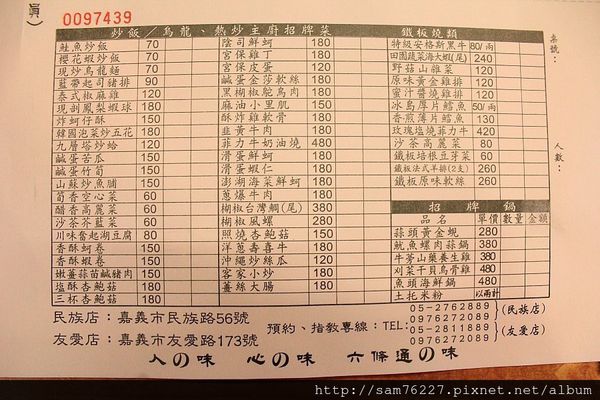 頁)
0097439
炒飯/烏龍、熱炒主廚招牌菜
鮭魚炒飯 70
櫻花蝦炒飯 70
現炒烏龍麵 70
藍帶起司豬排 90
泰式椒麻雞 120
現剖鳳梨蝦球 180
炸蚵仔酥 150
韓國泡菜炒五花 180
九層塔炒蛤 120
鹹蛋苦瓜 150
鹹蛋竹筍 150
山蘇炒魚脯 150
筍香空心菜 60
醋香高麗菜 60
沙茶芥藍菜 60
川味奮起湖豆腐 80
香酥蚵卷 150
香酥蝦卷 150
嫩薑蒜苗鹹豬肉 150
塩酥杏鮑菇 180
三杯杏鮑菇 180
陰司鮮蚵 180
宮保雞丁 180
宮保皮蛋 120
鹹蛋金莎軟絲 180
黑椒鴕鳥肉 180
麻油小里肌 150
酥炸雞軟骨 180
韭黃牛肉 180
菲力牛奶油燒 480
滑蛋鮮蚵 180
滑蛋蝦仁 180
澎湖海菜鮮蚵 180
蔥爆牛肉 180
椒椒台灣鯛(尾) 380
椒椒風螺 280
照燒杏鮑菇 150
洋蔥壽喜牛 180
沖繩炒絲瓜 120
客家小炒 180
薑絲大腸 180
鐵板燒類
特級安格斯黑牛 80/兩
田園蔬菜海大蝦(尾) 240
野菇山雞菜 120
原味黃金雞排 120
蜜汁醬燒雞排 120
冰島厚片鱈魚 50/兩
香煎薄片鱈魚 130
玫瑰塩燒菲力牛 420
沙茶高麗菜 60
鐵板培根豆芽菜 60
鐵板法式羊排(2支) 260
鐵板原味軟絲 260
招牌鍋
品名 單價 數量 金額
蒜頭黃金蜆 280
魷魚螺肉蒜鍋 380
牛蒡山藥養生雞 380
刈菜干貝烏骨雞 480
魚頭海鮮鍋 480
土托米粉 以兩計
桌號:
人數:
民族店:嘉義市民族路56號
友愛店:嘉義市友愛路173號
預約、指教專線:TEL:
05-2762889
0976272089 (民族店)
05-2811889
0976272089 (友愛店)
人の味 心の味 六條通の味
http://sam76227.pixnet.net/album